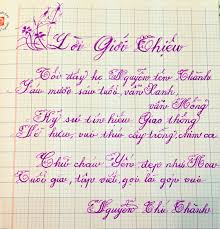 Lời Giới Thiệu
Tôi đây họ Nguyễn tên Thành
Sáu mươi sáu tuổi vẫn xanh,
vẫn hồng
Kỹ sư tín hiệu Giao thông
Về hưu, vui thú cây trồng, chim ca
Chữ đẹp như Hoa
Tuổi già, tập viết, gọi là góp vui
Nguyễn Thành